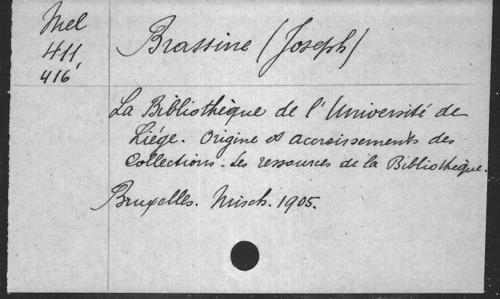 Mel
411,
416
Brassine (Joseph)
La Bibliothèque de l'Université de
Liége. Origine et accroissements des
Collections. Les ressources de la Bibliothèque.
Bruxelles. Misch. 1905.